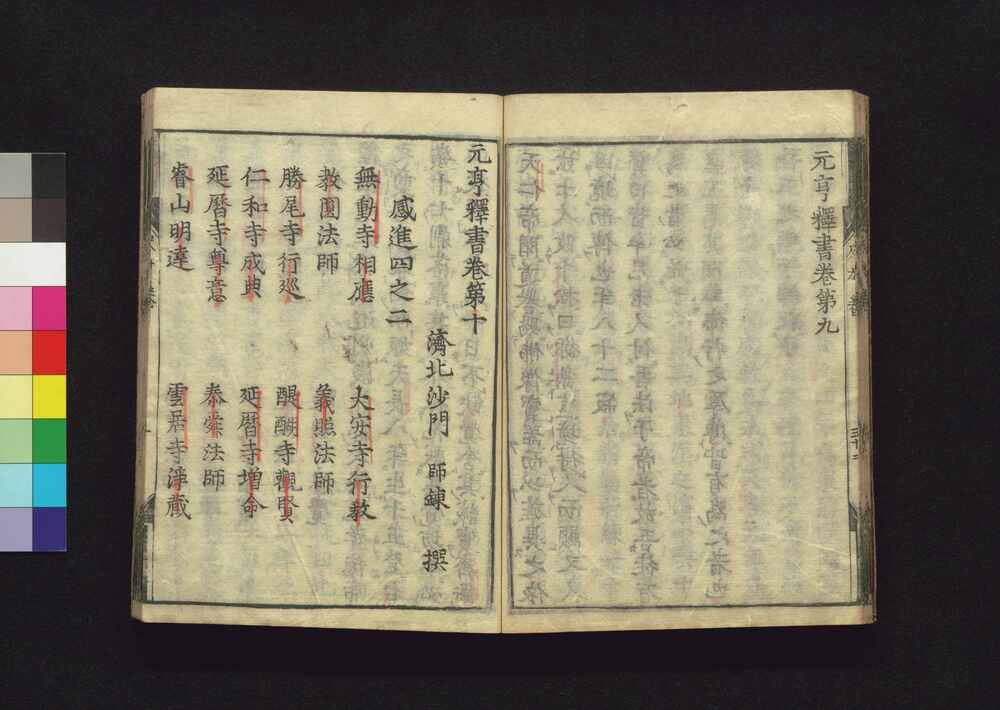 元亨釋書卷第九
元亨釋書卷第十
濟北沙門 師鍊 撰
感進四之二
無動寺相應 大安寺行教
教圓法師 義照法師
勝尾寺行巡 醍醐寺觀賢
仁和寺成典 延曆寺增命
延曆寺尊意 泰舜法師
睿山明達 雲居寺淨藏